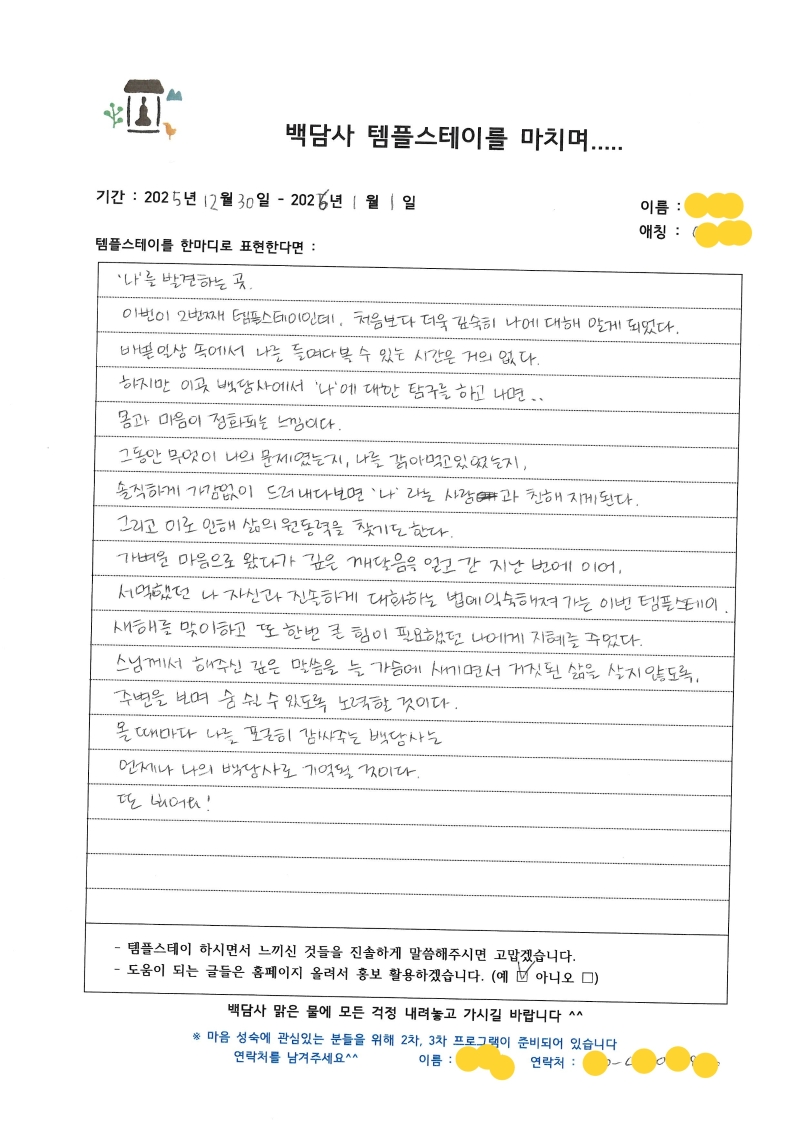 백담사 템플스테이를 마치며.....
기간 : 2025년 12월 30일 - 2026년 1월 1일
이름 :
애칭 :
템플스테이를 한마디로 표현한다면 :
'나'를 발견하는 곳.
이번이 2번째 템플스테이인데, 처음보다 더욱 깊숙히 나에 대해 알게 되었다.
바쁜일상 속에서 나를 들여다볼 수 있는 시간은 거의 없다.
하지만 이곳 백담사에서 '나'에 대한 탐구를 하고 나면..
몸과 마음이 정화되는 느낌이다.
그동안 무엇이 나의 문제였는지, 나를 갉아먹고있었는지,
솔직하게 가감없이 드러내다보면 '나' 라는 사람과 친해지게된다.
그리고 이로 인해 삶의 원동력을 찾기도 한다.
가벼운 마음으로 왔다가 깊은 깨달음을 얻고 간 지난 번에 이어,
서먹했던 나 자신과 진솔하게 대화하는 법에 익숙해져 가는 이번 템플스테이.
새해를 맞이하고 또 한번 큰 힘이 필요했던 나에게 지혜를 주었다.
스님께서 해주신 깊은 말씀을 늘 가슴에 새기면서 거짓된 삶을 살지 않도록,
주변을 보며 숨 쉴 수 있도록 노력할 것이다.
올 때마다 나를 포근히 감싸주는 백담사는
언제나 나의 백담사로 기억될 것이다.
또 봬어요!
- 템플스테이 하시면서 느끼신 것들을 진솔하게 말씀해주시면 고맙겠습니다.
- 도움이 되는 글들은 홈페이지 올려서 홍보 활용하겠습니다. (예 ☑ 아니오 □)
백담사 맑은 물에 모든 걱정 내려놓고 가시길 바랍니다 ^^
※ 마음 성숙에 관심있는 분들을 위해 2차, 3차 프로그램이 준비되어 있습니다
연락처를 남겨주세요^^ 이름 : 연락처 :